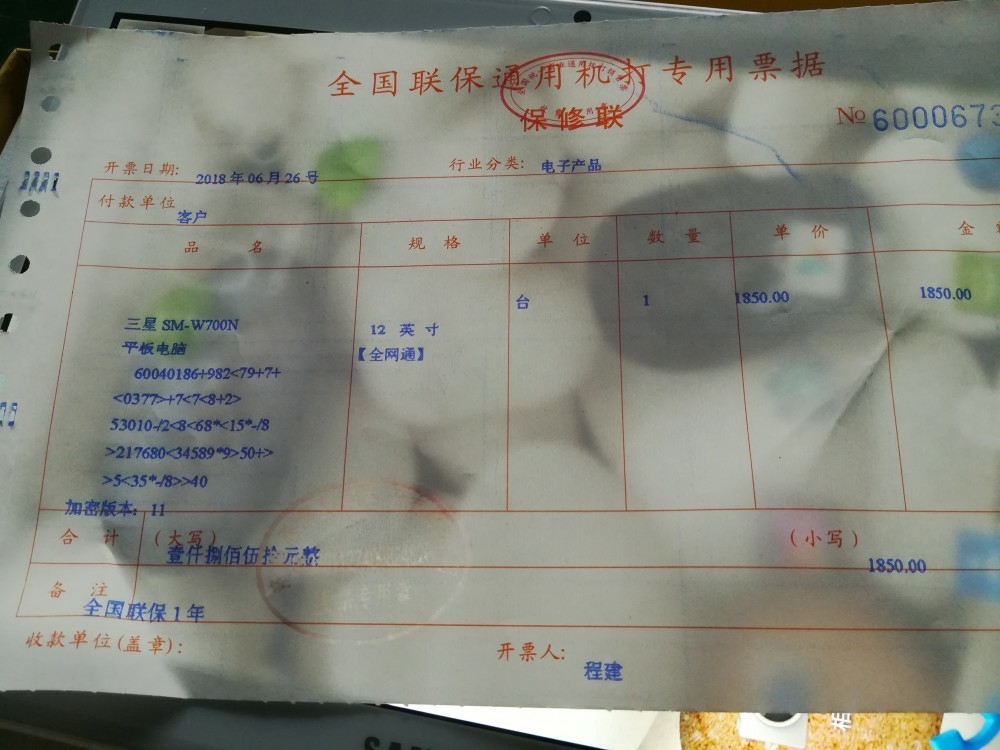 全国联保通用机打专用票据
保修联
No 6000673
开票日期: 2018年06月26号 行业分类: 电子产品
付款单位 客户
品名 规格 单位 数量 单价 金
台 1 1850.00 1850.00
三星 SM-W700N 12 英寸
平板电脑 【全网通】
60040186+982<79+7+
<0377>+7<7<8+2>
53010-/2<8<68*<15*-/8
>217680<34589*9>50+>
>5<35*-/8>>40
加密版本: 11
合计 (大写) 壹仟捌佰伍拾元整 (小写) 1850.00
备注 全国联保1年
收款单位(盖章): 开票人: 程建